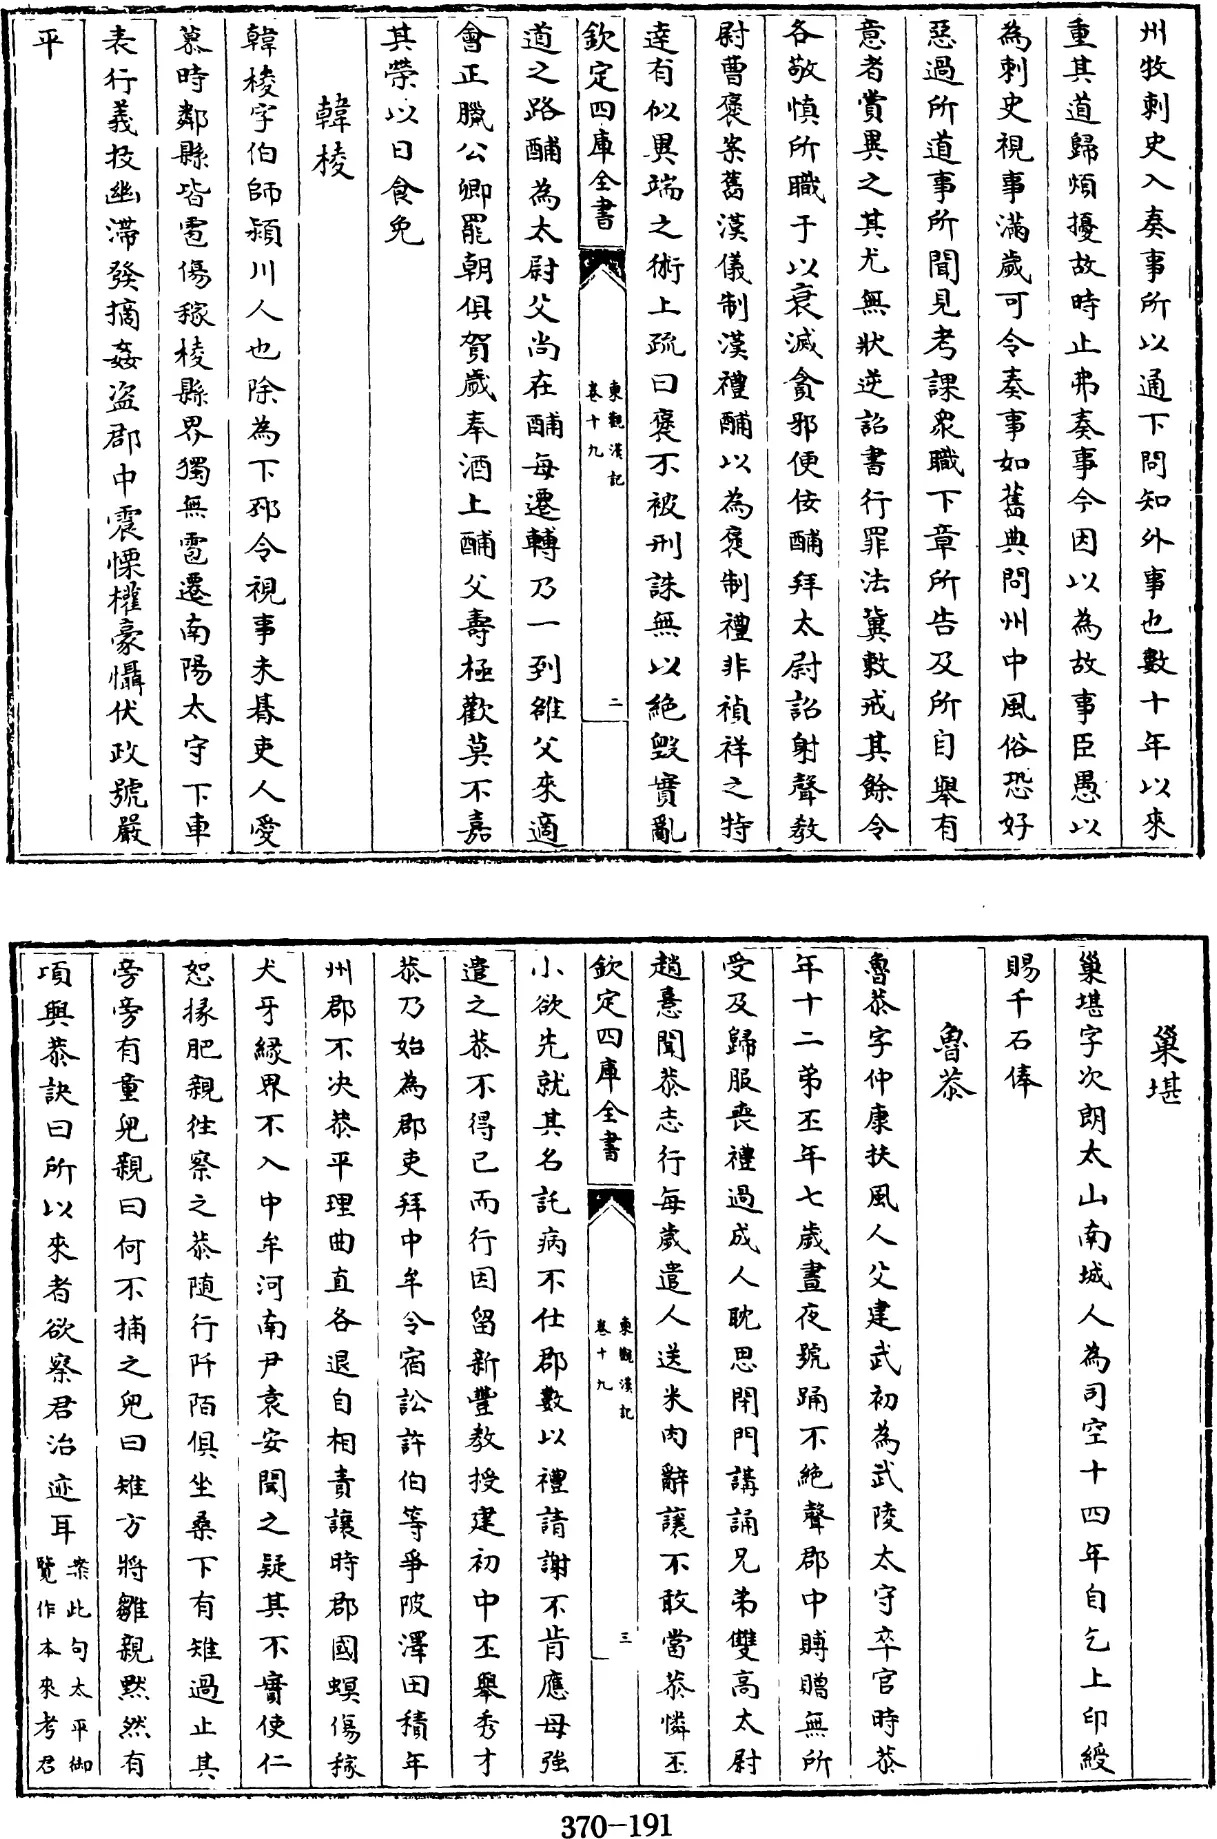 州牧刺史入奏事所以通下問知外事也數十年以來
重其道歸煩擾故時止弗奏事今因以為故事臣愚以
為刺史視事滿歲可令奏事如舊典問州中風俗恐好
惡過所道事所聞見考課衆職下章所告及所自舉有
意者賞異之其尤無狀逆詔書行罪法冀敕戒其餘令
各敬慎所職于以衰滅貪邪便佞酺拜太尉詔射聲教
尉曹襃案舊漢儀制漢禮酺以為襃制禮非禎祥之特
達有似異端之術上疏曰襃不被刑誅無以絶毀實亂
欽定四庫全書
東觀漢記
卷十九
二
道之路酺為太尉父尚在酺每遷轉乃一到雒父來適
會正臘公卿罷朝俱賀歲奉酒上酺父壽極歡莫不嘉
其榮以日食免
韓棱
韓棱字伯師潁川人也除為下邳令視事未朞吏人愛
慕時鄰縣皆雹傷稼棱縣界獨無雹遷南陽太守下車
表行義拔幽滯發摘姦盜郡中震慄權豪懾伏政號嚴
平
巢堪
巢堪字次朗太山南城人為司空十四年自乞上印綬
賜千石俸
魯恭
魯恭字仲康扶風人父建武初為武陵太守卒官時恭
年十二弟丕年七歲晝夜號踊不絶聲郡中賻贈無所
受及歸服喪禮過成人耽思閉門講誦兄弟雙高太尉
趙憙聞恭志行每歲遣人送米肉辭讓不敢當恭憐丕
欽定四庫全書
東觀漢記
卷十九
三
小欲先就其名託病不仕郡數以禮請謝不肯應母強
遣之恭不得已而行因留新豐教授建初中丕舉秀才
恭乃始為郡吏拜中牟令宿訟許伯等爭陂澤田積年
州郡不決恭平理曲直各退自相責讓時郡國螟傷稼
犬牙緣界不入中牟河南尹袁安聞之疑其不實使仁
恕掾肥親往察之恭隨行阡陌俱坐桑下有雉過止其
旁旁有童兒親曰何不捕之兒曰雉方將雛親黙然有
頃與恭訣曰所以來者欲察君治迹耳案此句太平御
覽作本來考君
370-191